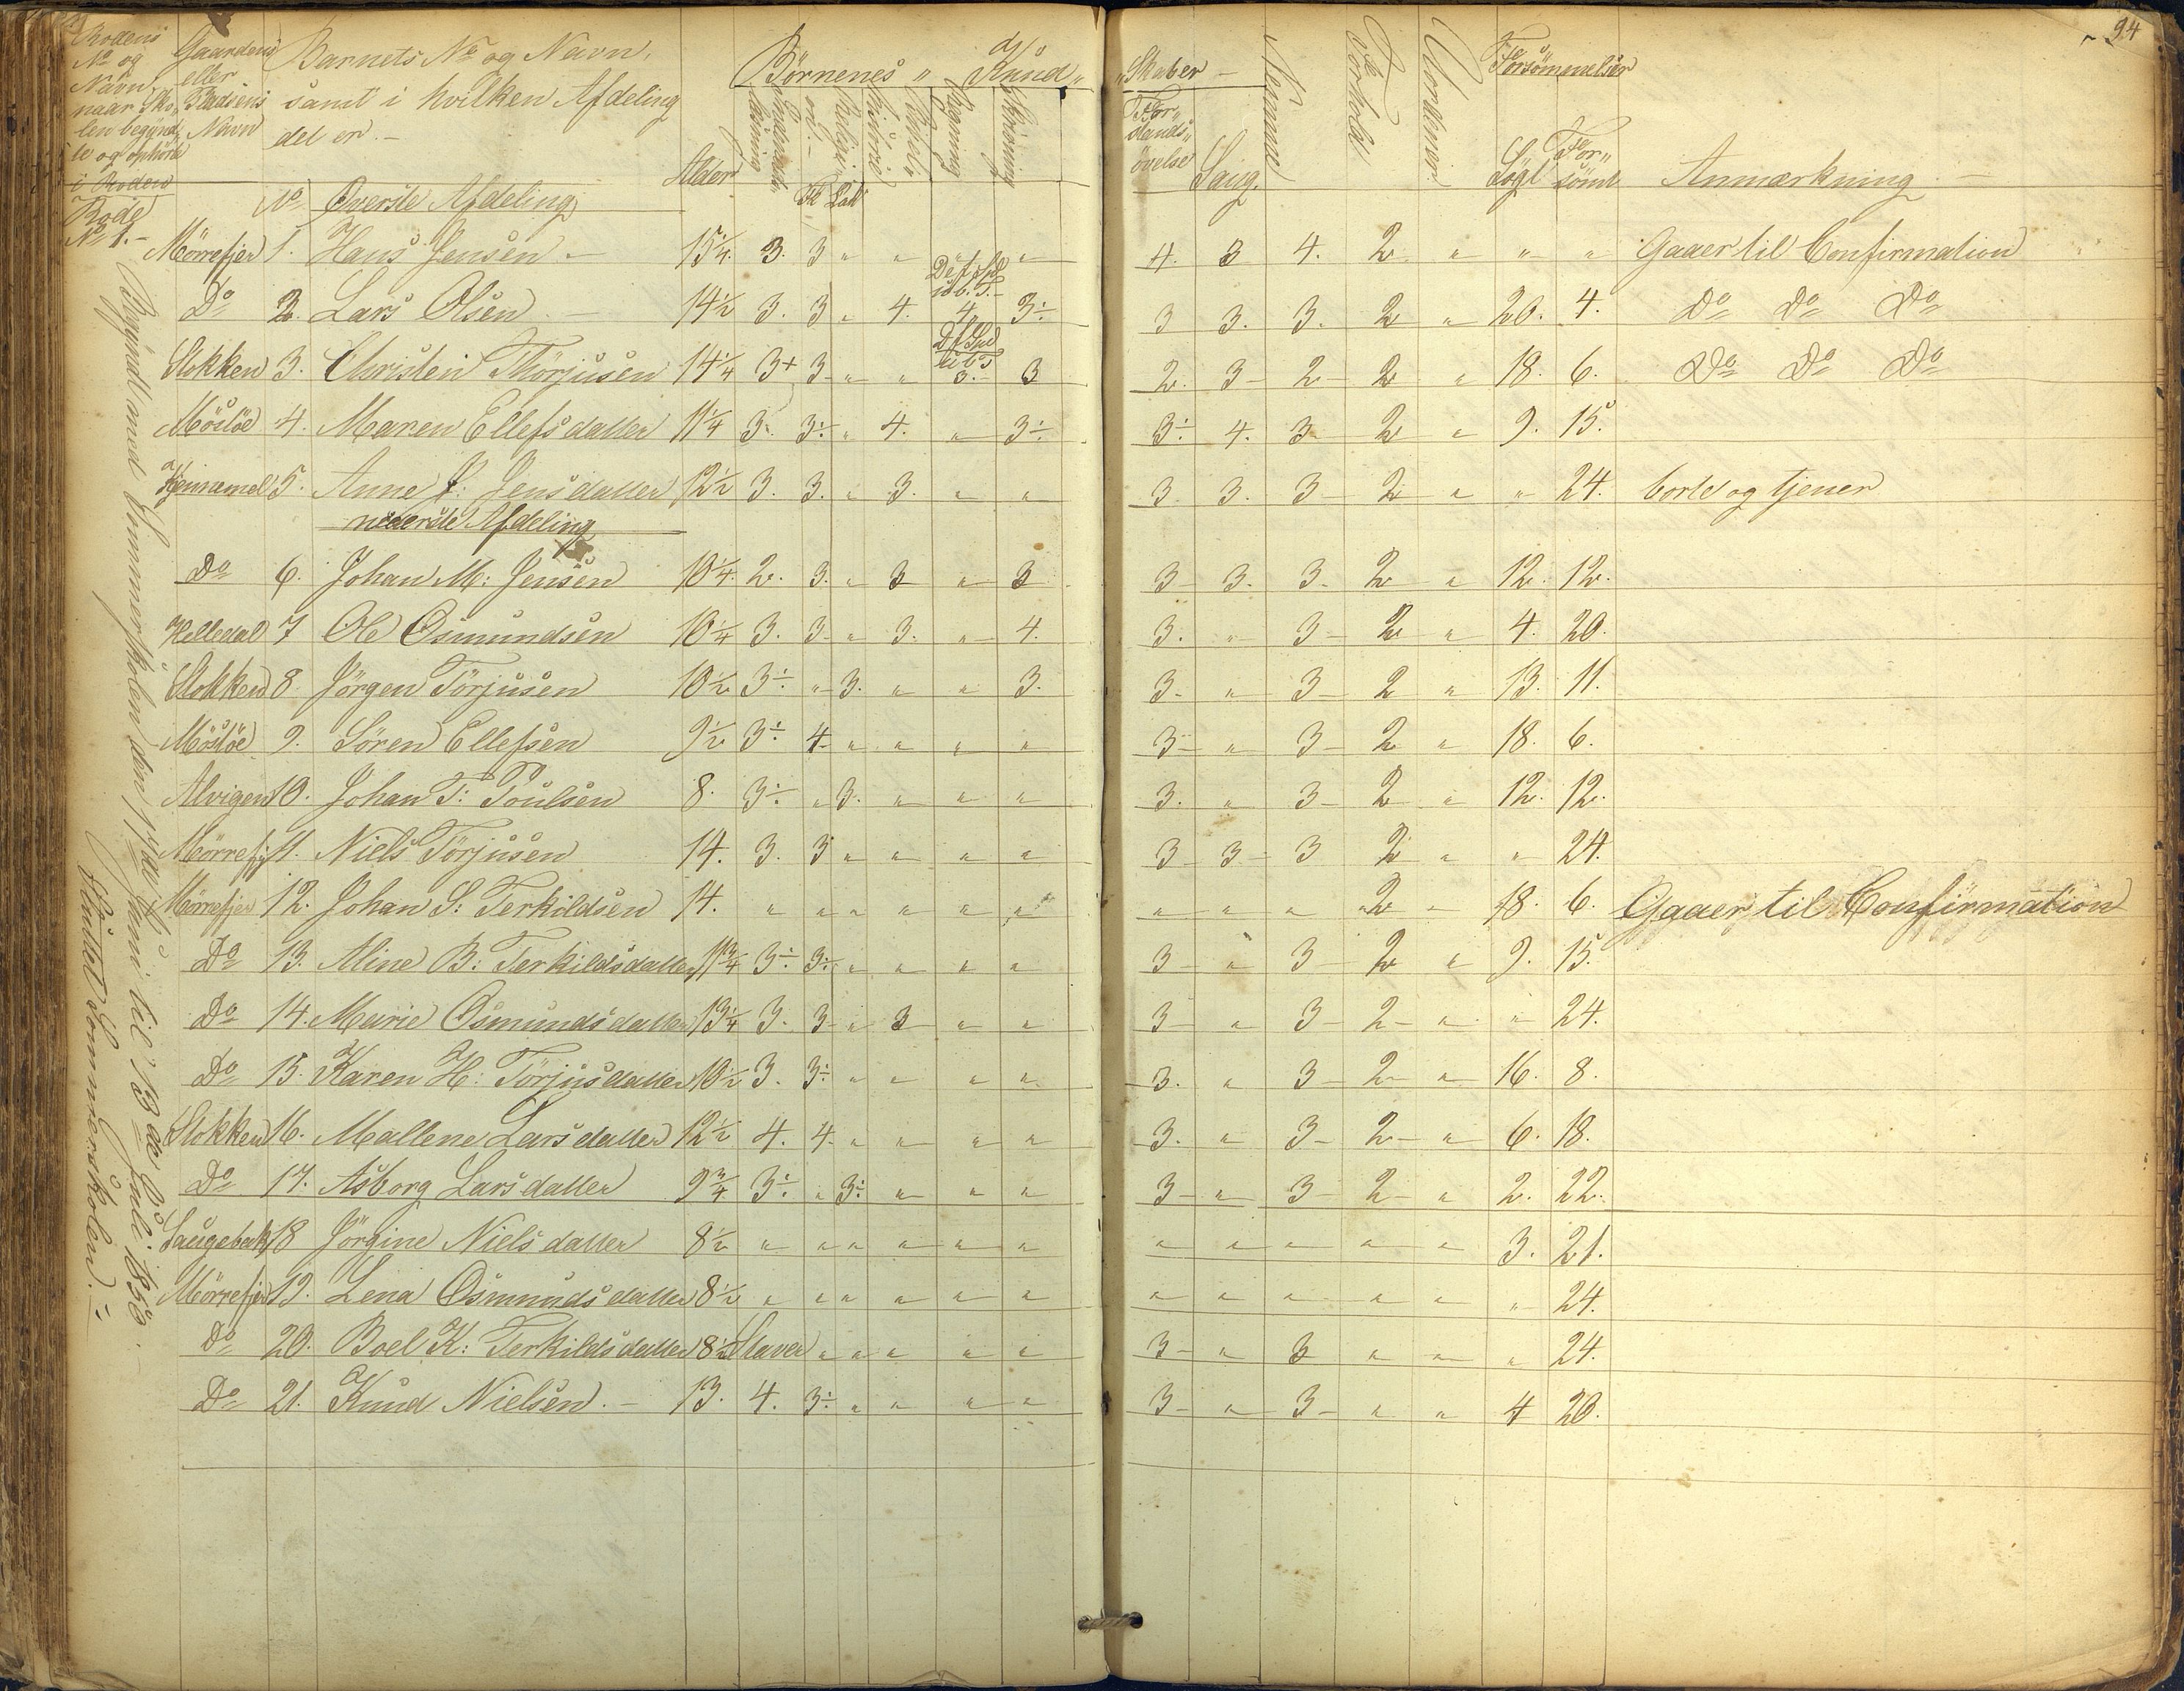 94
Rodens No og Navn, naar Sko- len begynd- te og ophörte i Roden
Gaardens eller Pladsens Navn
Barnets No og Navn, samt i hvilken Afdeling det er. -
Alder
Börnenes Kund- skaber -
Religi- on. - Fk Lab
Regning
Skrivning
For- stands- övelse
Sang.
Nemme
Forhold
Forsömmelser
Sögt For- sömt
Anmærkning. -
Rode No 1. -
No Överste Afdeling
Mörrefjer 1. Hans Jensen. - 15 1/4. 3. 3 " " " " 4. 3 4. 2 " " " Gaaer til Confirmation
Do 2. Lars Olsen. - 14 1/2 3. 3 " 4. 4. 3÷ 3 3. 3. 2 " 20. 4. Do Do Do
Stokken 3. Christen Thörjusen 14 1/4 3+ 3 - " " 3. - 3 2. 3 - 2 - 2 " 18. 6. Do Do Do
Möslöe 4. Maren Ellefsdatter 11 1/4 3. 3÷ " 4. " 3÷ 3÷ 4. 3 2 " 9. 15.
5. Anne J: Jensdatter 12 1/2 3. 3. " 3. " " 3 3. 3 - 2 " " 24. borte og tjener
nederste Afdeling
Do 6. Johan M: Jensen 10 1/4. 2. 3. " 3 " 3 3 - 3. 3. 2 " 12. 12.
Helledal 7 Ole Osmundsen 10 1/4 3. 3 - " 3. " 4. 3. " 3 - 2 " 4. 20.
Stokken 8. Jörgen Törjusen 10 1/2 3÷ " 3. " " 3. 3. " 3 - 2 " 13. 11.
Möslöe 9. Sören Ellefsen 9 1/2 3÷ 4 - " " " " 3 - " 3 - 2 " 18. 6.
Alvigen 10. Johan T: Poulsen 8. 3÷ " 3. " " " 3. " 3 - 2 " 12. 12.
Mörrefj 11. Niels Törjusen 14. 3. 3 " " " " 3 3 3 2 " " 24.
Mörrefjer 12. Johan S: Terkildsen 14. " " " " " " " " " 2 - 18. 6. Gaaer til Confirmation
Do 13. Aline B: Terkildsdatter 11 3/4 3÷ 3÷ " " " " 3 - " 3 - 2 " 9. 15.
Do 14. Marie Osmundsdatter 13 1/4 3. 3 - " 3 " " 3 - " 3 - 2 - " " 24.
Do 15. Karen H: Törjusdatter 10 1/2 3. 3÷ " " " " 3. " 3 - 2 - " 16. 8.
Stokken 16. Mallene Larsdatter 12 1/2 4. 4 - " " " " 3. " 3 - 2 - " 6. 18.
Do 17. Asborg Larsdatter 9 3/4 3÷ " 3÷ " " " 3 - " 3 - 2 - " 2. 22.
Saugebak 18 Jörgine Nielsdatter 8 1/2 " " " " " " " " " " " 3. 21.
Mörrefjer 19. Lena Osmundsdatter 8 1/2 " " " " " " " " " " " " 24.
Do 20. Boel K: Terkildsdatter 8 1/2 Staver " " " " " 3 - " 3 " " " 24.
Do 21. Knud Nielsen. - 13. 4. 3÷ " " " " 3 - " 3 - " " 4 20.
Begyndt med Sommerskolen den Juni til 13de Juli 1850. -
Sluttet Sommerskolen. -